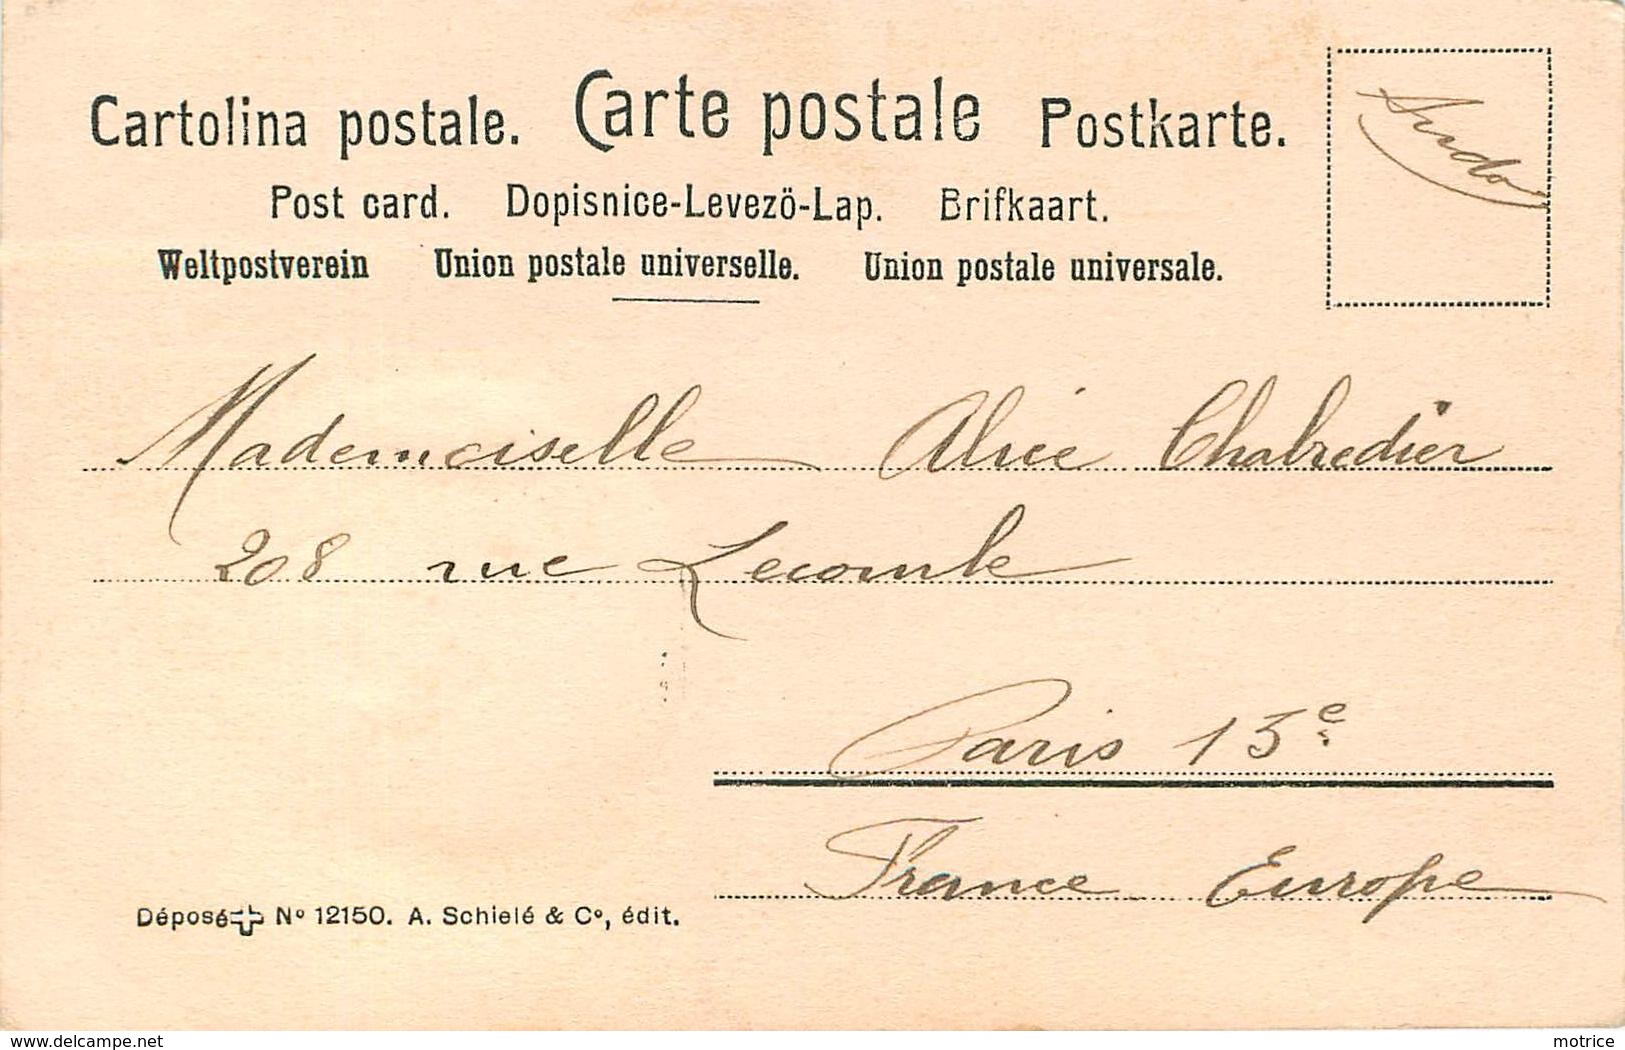 Cartolina postale. Carte postale Postkarte.
Post card. Dopisnice-Levezö-Lap. Brifkaart.
Weltpostverein Union postale universelle. Union postale universale.
Mademoiselle Alice Chabredier
208 rue Lecomte
Paris 13e
France Europe
Déposé N° 12150. A. Schielé & C°, édit.
delcampe.net
motrice